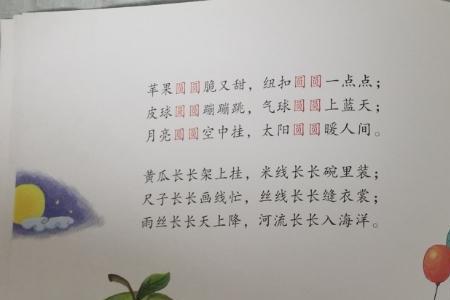 苹果圆圆脆又甜，纽扣圆圆一点点；
皮球圆圆蹦蹦跳，气球圆圆上蓝天；
月亮圆圆空中挂，太阳圆圆暖人间。
黄瓜长长架上挂，米线长长碗里装；
尺子长长画线忙，丝线长长缝衣裳；
雨丝长长天上降，河流长长入海洋。